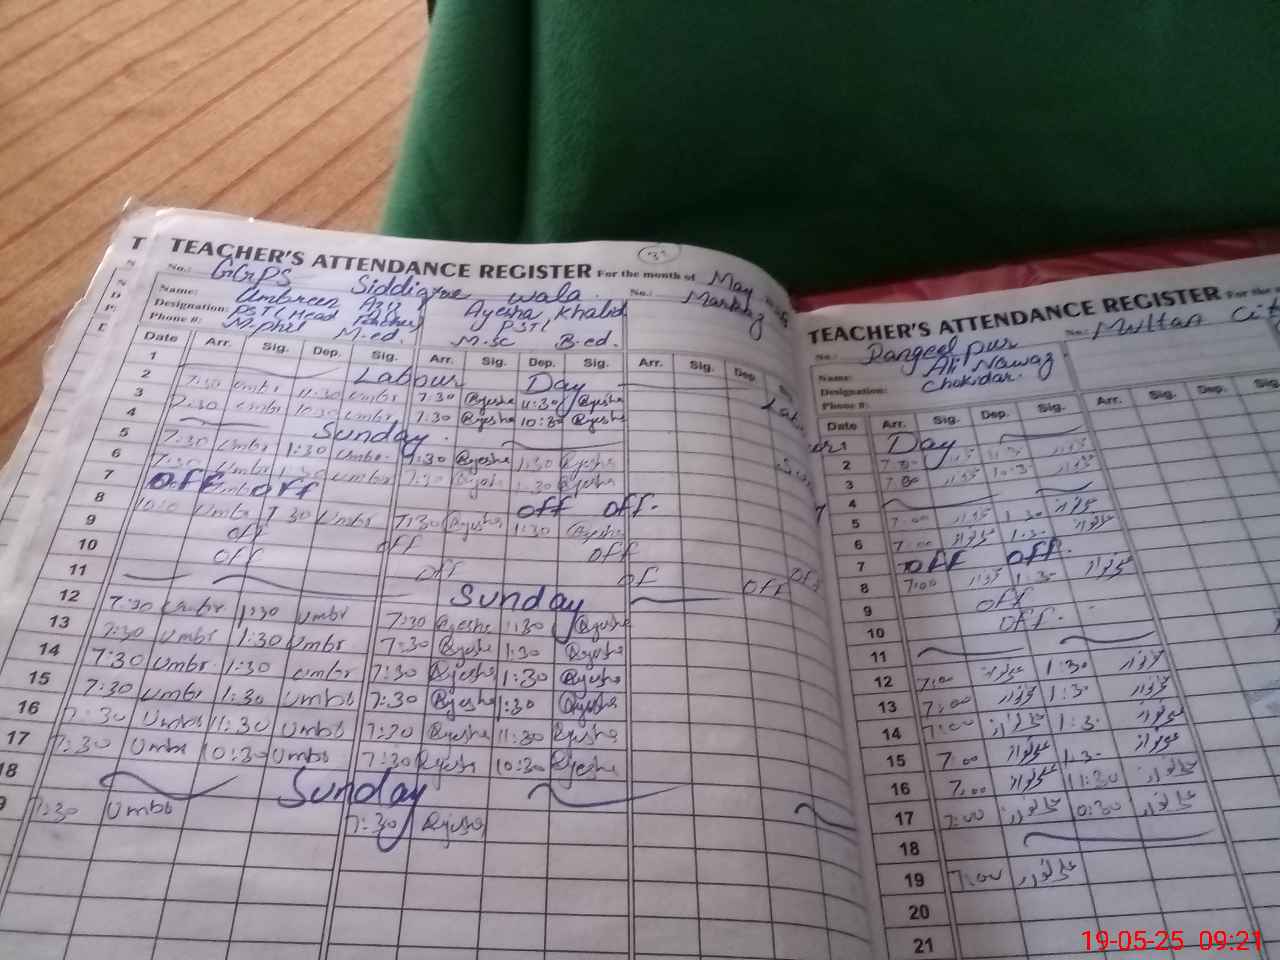 TEACHER'S ATTENDANCE REGISTER For the month of May
No.: GGPS Siddique wala. No.: Markaz
Name: Umbreen Aziz Ayesha Khalid
Designation: PST/Head Teacher PST
Phone #: M.phil M.ed. M.sc B.ed.
Date Arr. Sig. Dep. Sig. Arr. Sig. Dep. Sig. Arr. Sig. Dep.
1 Labour Day
2 7:30 Umbr 11:30 Umbr 7:30 Ayesha 11:30 Ayesha
3 7:30 Umbr 10:30 Umbr 7:30 Ayesha 10:30 Ayesha
4 Sunday
5 7:30 Umbr 1:30 Umbr 7:30 Ayesha 1:30 Ayesha
6 7:30 Umbr 1:30 Umbr 7:30 Ayesha 1:30 Ayesha
7 off off off off.
8 Umbr 1:30 Umbr 7:30 Ayesha 1:30 Ayesha
9 off off off
10 off off of off off
11 Sunday
12 7:30 Umbr 1:30 Umbr 7:30 Ayesha 1:30 Ayesha
13 7:30 Umbr 1:30 Umbr 7:30 Ayesha 1:30 Ayesha
14 7:30 Umbr 1:30 Umbr 7:30 Ayesha 1:30 Ayesha
15 7:30 Umbr 1:30 Umbr 7:30 Ayesha 1:30 Ayesha
16 7:30 Umbr 11:30 Umbr 7:30 Ayesha 11:30 Ayesha
17 7:30 Umbr 10:30 Umbr 7:30 Ayesha 10:30 Ayesha
18 Sunday
9 7:30 Umbr 7:30 Ayesha
TEACHER'S ATTENDANCE REGISTER For the
No.: Rangeel pur No.: Multan Cit
Name: Ali Nawaz
Designation: Chokidar.
Phone #:
Date Arr. Sig. Dep. Sig. Arr. Sig. Dep. Sig.
1 Day
2 7:00 11:30
3 7:00 10:30
4
5 7:00 1:30
6 7:00 1:30
7 off off.
8 7:00 1:30
9 off
10 off.
11
12 7:00 1:30
13 7:00 1:30
14 7:00 1:30
15 7:00 1:30
16 7:00 11:30
17 7:00 10:30
18
19 7:00
20
21
19-05-25 09:21